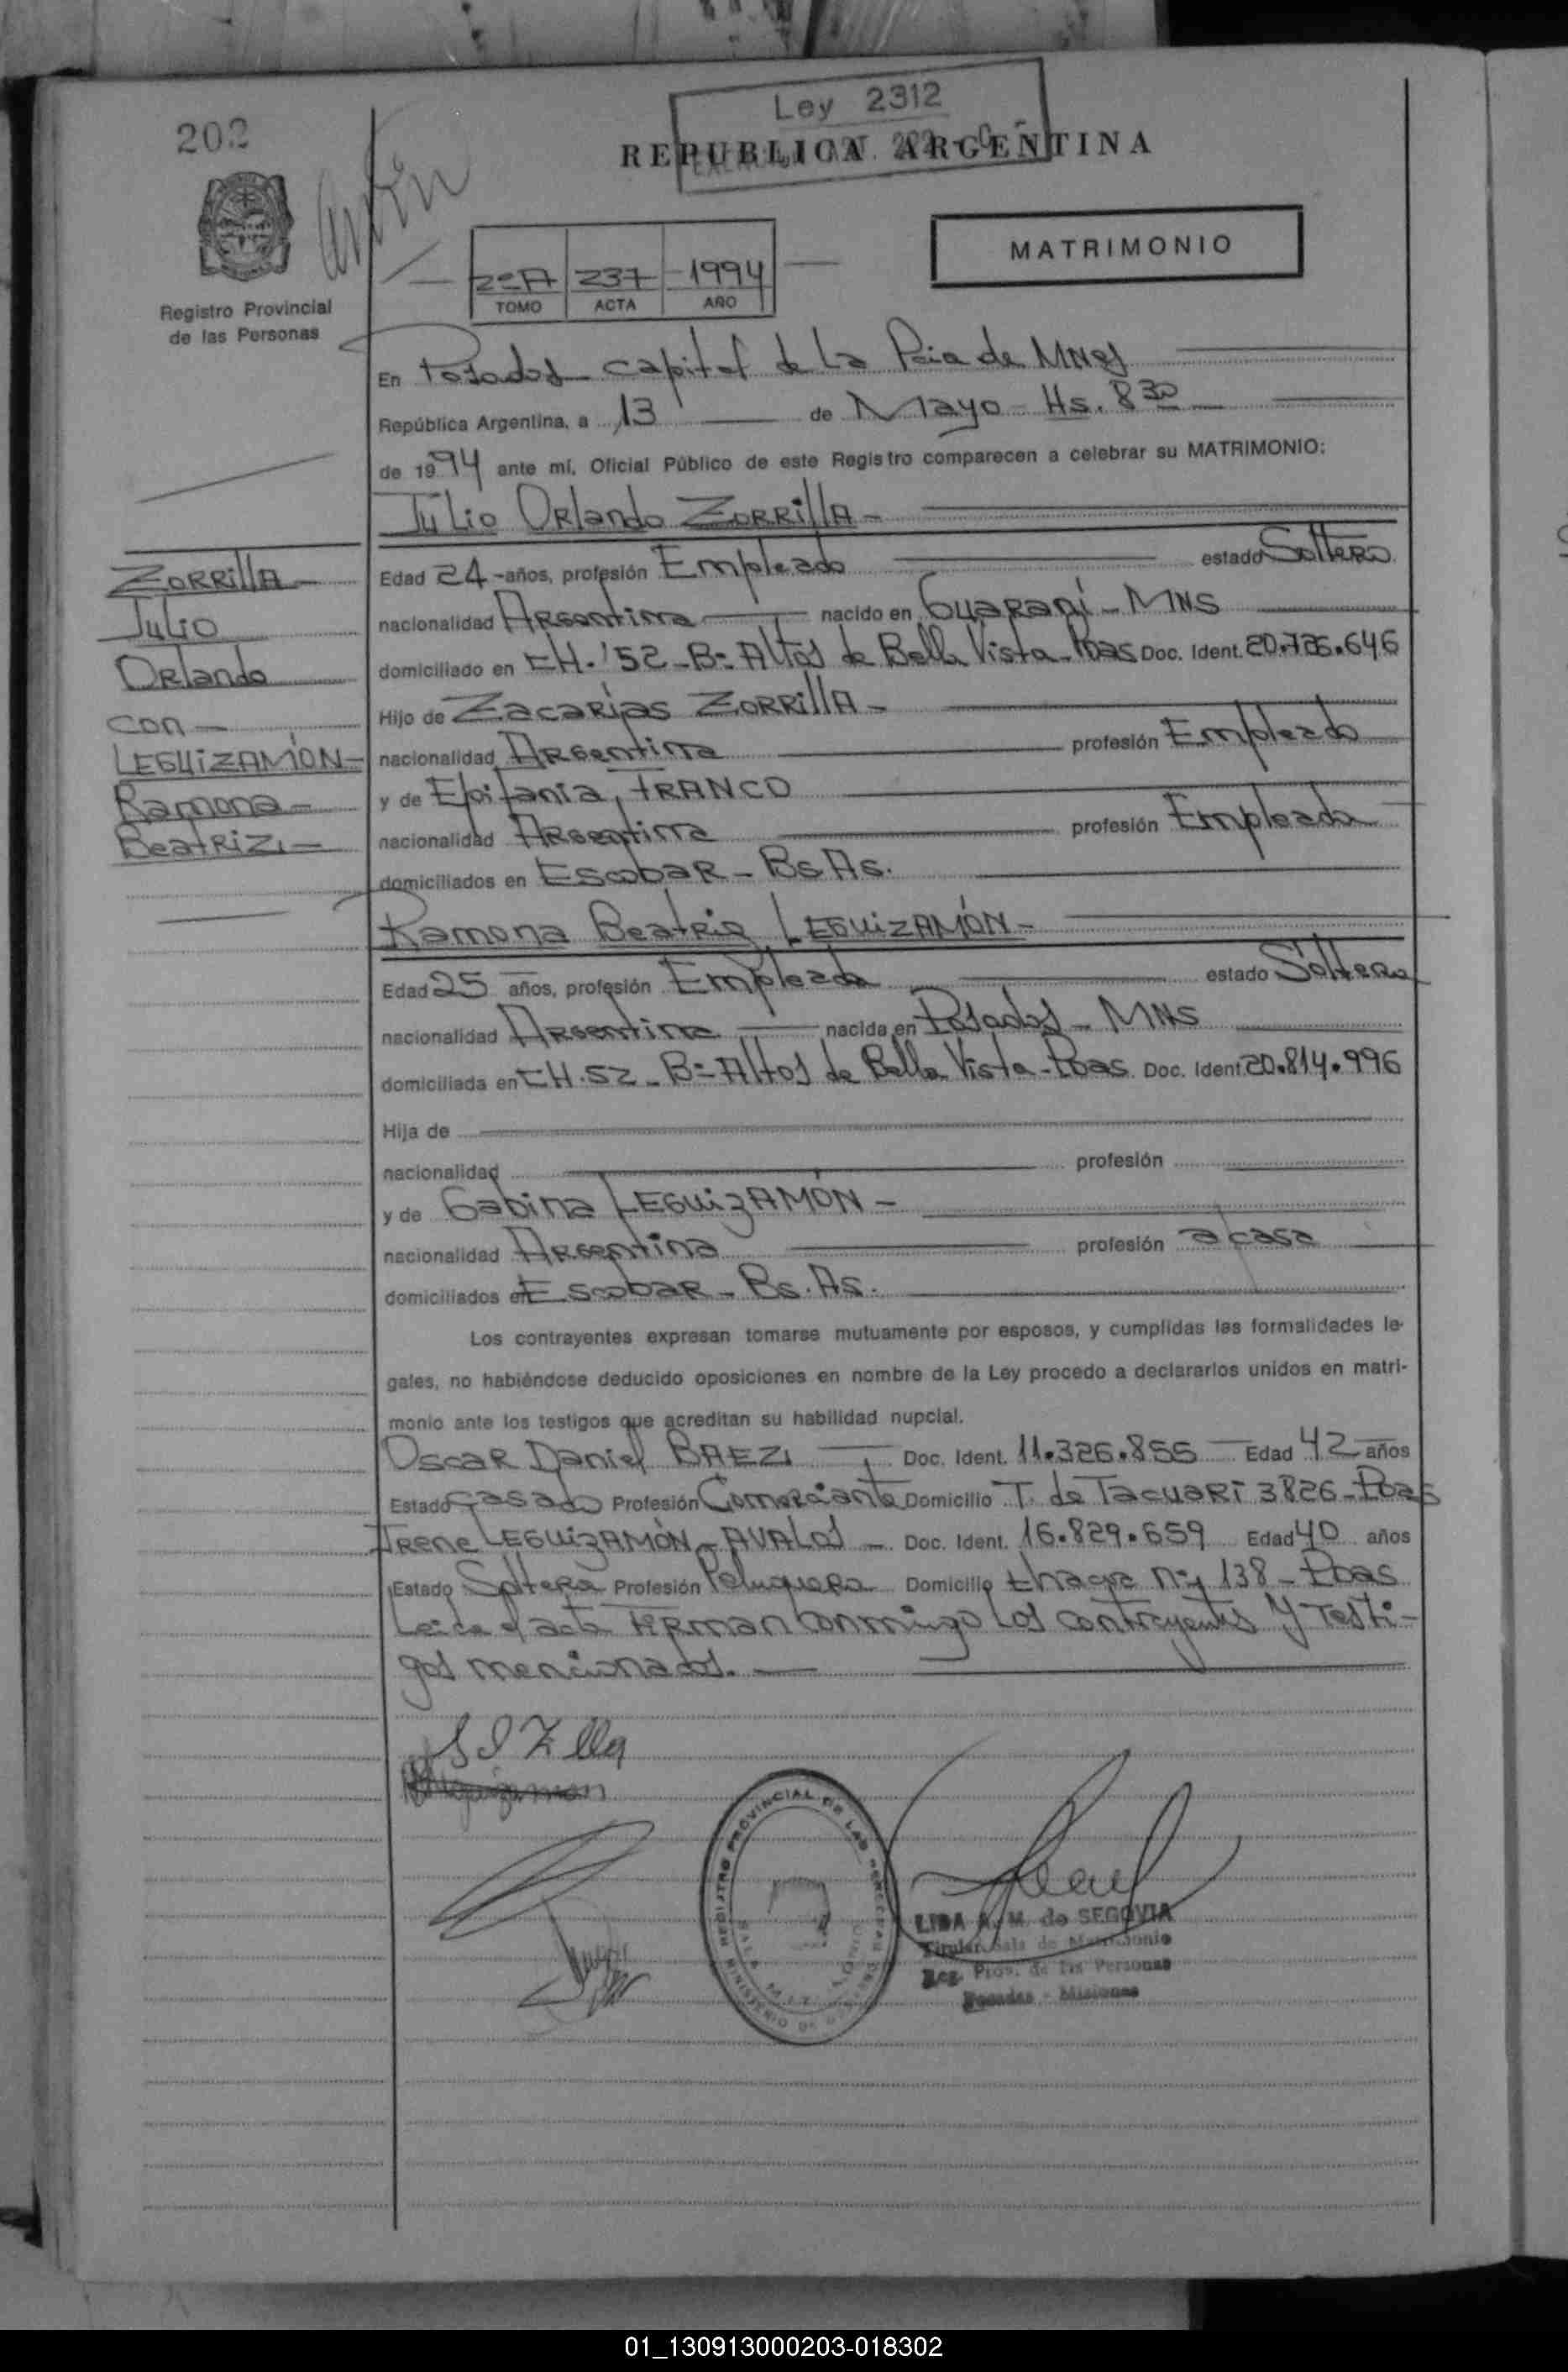 Ley 2312
202
REPUBLICA ARGENTINA
MATRIMONIO
2º A 237 1994
TOMO ACTA AÑO
Registro Provincial
de las Personas
En Posadas capital de La Pcia de MNes
República Argentina, a 13 de Mayo - Hs. 8 30
de 1994 ante mí, Oficial Público de este Registro comparecen a celebrar su MATRIMONIO:
Julio Orlando ZORRILLA -
ZORRILLA -
Julio
Orlando
con -
LEGUIZAMÓN -
Ramona -
Beatriz -
Edad 24 - años, profesión Empleado estado Soltero
nacionalidad Argentina nacido en Guaraní - MNS
domiciliado en CH. 52 - Bº Altos de Bella Vista - Pdas Doc. Ident. 20.726.646
Hijo de Zacarías ZORRILLA -
nacionalidad Argentina profesión Empleado
y de Epifania, FRANCO
nacionalidad Argentina profesión Empleada
domiciliados en Escobar - Bs As.
Ramona Beatriz LEGUIZAMÓN -
Edad 25 años, profesión Empleada estado Soltera
nacionalidad Argentina nacida en Posadas - MNS
domiciliada en CH. 52 - Bº Altos de Bella Vista - Pdas. Doc. Ident. 20.814.996
Hija de
nacionalidad profesión
y de Gabina LEGUIZAMÓN -
nacionalidad Argentina profesión a/casa
domiciliados en Escobar - Bs. As.
Los contrayentes expresan tomarse mutuamente por esposos, y cumplidas las formalidades le-
gales, no habiéndose deducido oposiciones en nombre de la Ley procedo a declararlos unidos en matri-
monio ante los testigos que acreditan su habilidad nupcial.
Oscar Daniel BAEZ Doc. Ident. 11.326.855 Edad 42 años
Estado Casado Profesión Comerciante Domicilio T. de Tacuari 3826 - Pdas
Irene LEGUIZAMÓN - AVALOS - Doc. Ident. 16.829.659 Edad 40 años
Estado Soltera Profesión Peluquera Domicilio 138 - Pdas
Leida el acta Firman conmigo los contrayentes y Testi-
gos mencionados.
REGISTRO PROVINCIAL DE LAS PERSONAS
LIDA A. M. de SEGOVIA
Titular Sala de Matrimonio
Reg. Prov. de las Personas
Posadas - Misiones
01_130913000203-018302